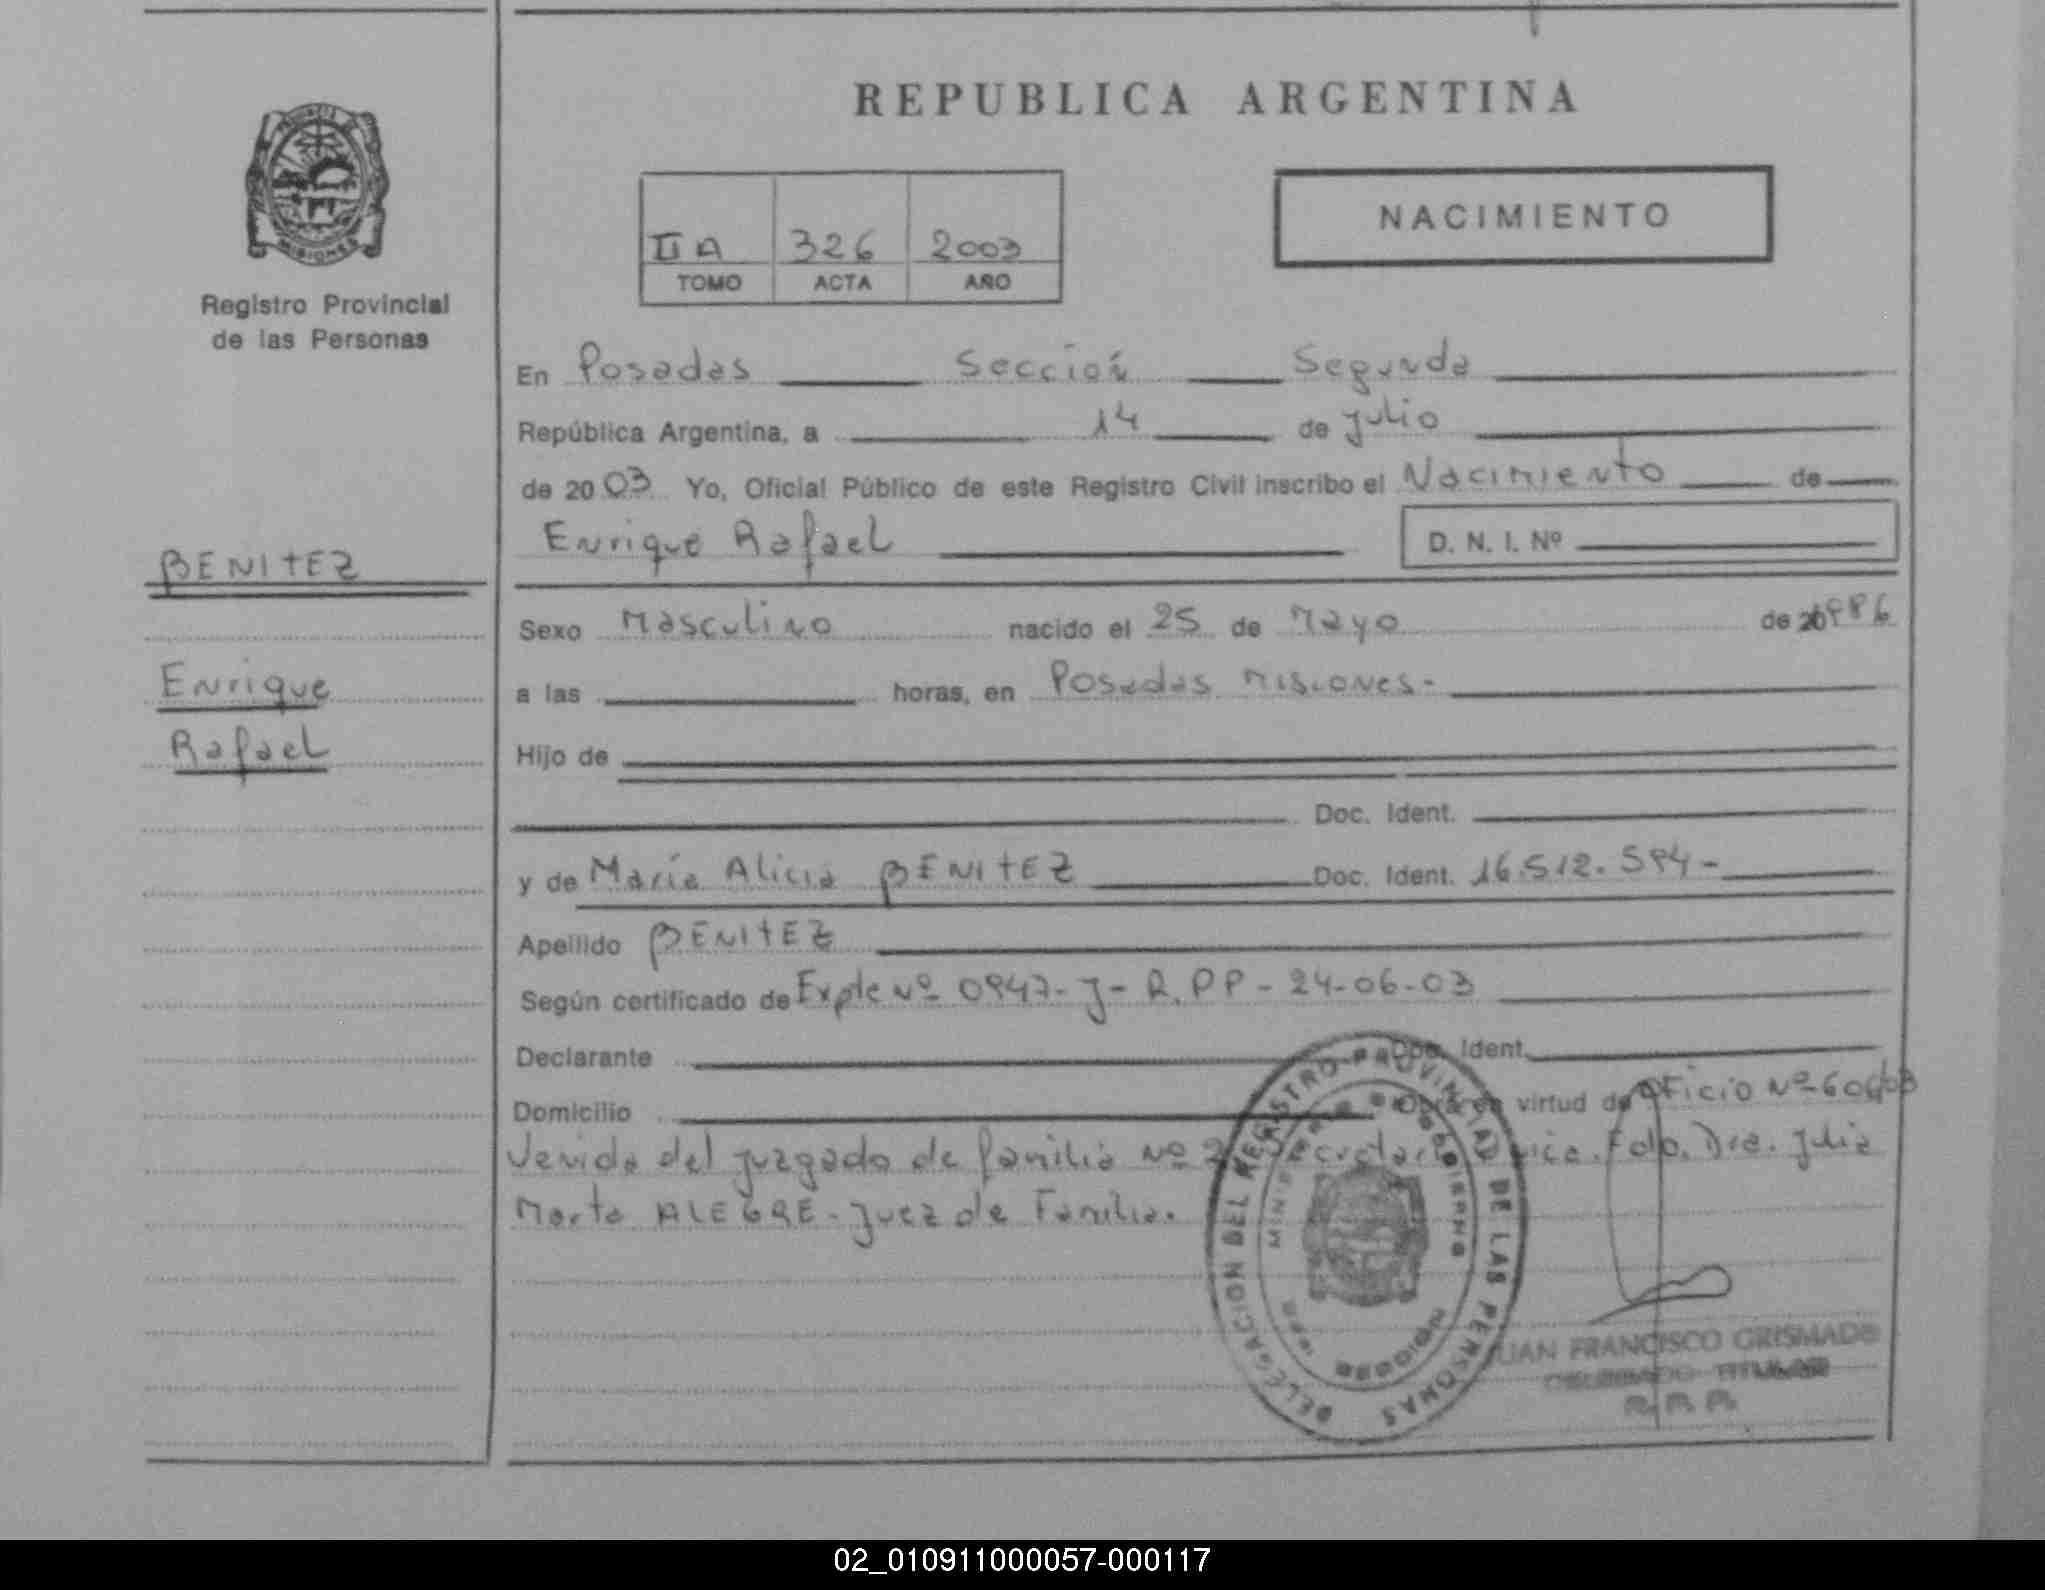 REPUBLICA ARGENTINA
MISIONES
Registro Provincial
de las Personas
NACIMIENTO
II A 326 2003
TOMO ACTA AÑO
En Posadas Sección Segunda
República Argentina, a 14 de Julio
de 2003 Yo, Oficial Público de este Registro Civil inscribo el Nacimiento de
Enrique Rafael D. N. I. Nº
BENITEZ
Enrique
Rafael
Sexo Masculino nacido el 25 de Mayo de 1986
a las horas, en Posadas Misiones.-
Hijo de
Doc. Ident.
y de María Alicia BENITEZ Doc. Ident. 16.512.594-
Apellido BENITEZ
Según certificado de Expte Nº 0947-J-R.PP-24-06-03
Declarante Doc. Ident.
Domicilio virtud de Oficio Nº
Venido del juzgado de familia Nº 2 Fdo. Dra. Julia
Marta ALEGRE-Juez de Familia.
DELEGACION DEL REGISTRO PROVINCIAL DE LAS PERSONAS
MINISTERIO DE GOBIERNO
JUAN FRANCISCO GRISMADO
DELEGADO TITULAR
R.P.P.
02_010911000057-000117